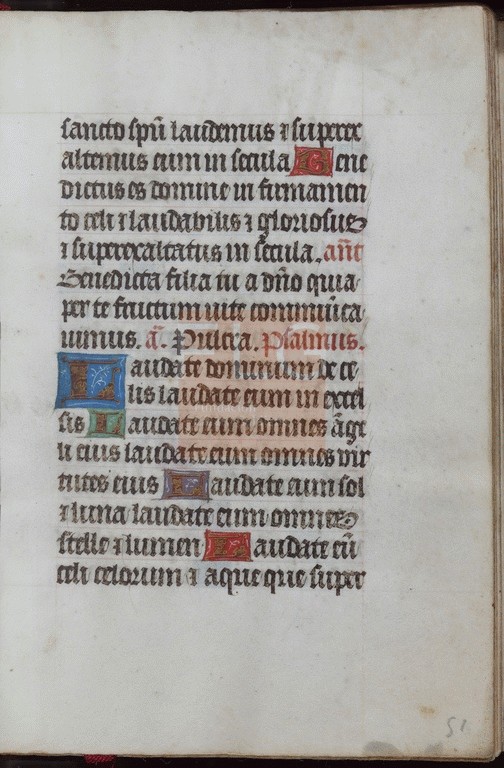 sancto spũ laudemus ⁊ superex
altemus eum in secula Bene
dictus es domine in firmamen
to celi ⁊ laudabilis ⁊ gloriosus
⁊ superexaltatus in secula. añt
Benedicta filia tu a dño quia
per te fructum vite commũica
uimus. ã. Pulcra. Psalmus.
Laudate dominum de ce
lis laudate eum in excel
sis Laudate eum omnes ãge
li eius laudate eum omnes vir
tutes eius Laudate eum sol
⁊ luna laudate eum omnes
stelle ⁊ lumen Laudate eũ
celi celorum ⁊ aque que super
51